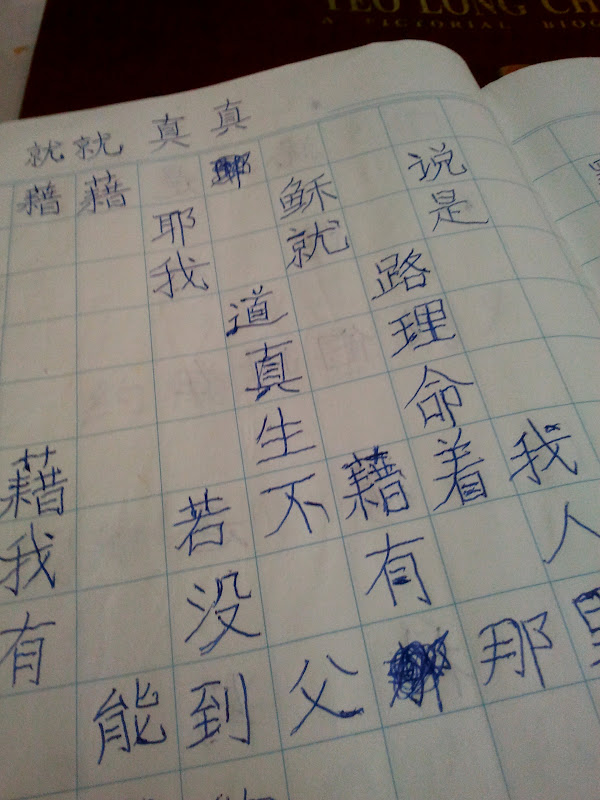 YEO LONG CH
A PICTORIAL BIOG
就就 真 真
藉 藉
耶 稣 说
我 就 是
道 路
真 理
生 命
藉 若 不 藉 着 我
我 没 有 人
有 能 到 父 那